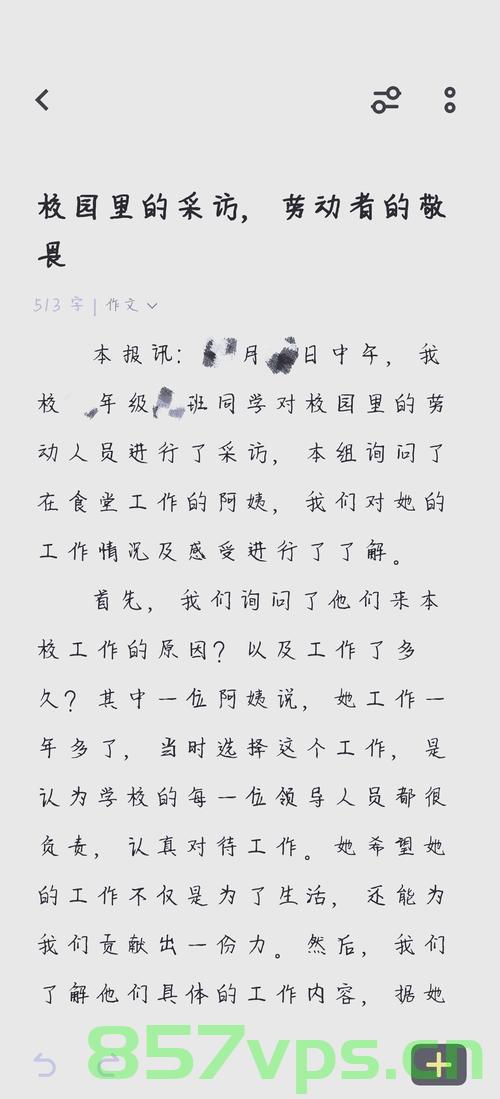 校园里的采访，劳动者的敬
畏
513 字 | 作文
本报讯：月日中午，我
校年级班同学对校园里的劳
动人员进行了采访，本组询问了
在食堂工作的阿姨，我们对她的
工作情况及感受进行了了解。
首先，我们询问了他们来本
校工作的原因？以及工作了多
久？其中一位阿姨说，她工作一
年多了，当时选择这个工作，是
认为学校的每一位领导人员都很
负责，认真对待工作。她希望她
的工作不仅是为了生活，还能为
我们贡献出一份力。然后，我们
了解他们具体的工作内容，据她
857vps.cn